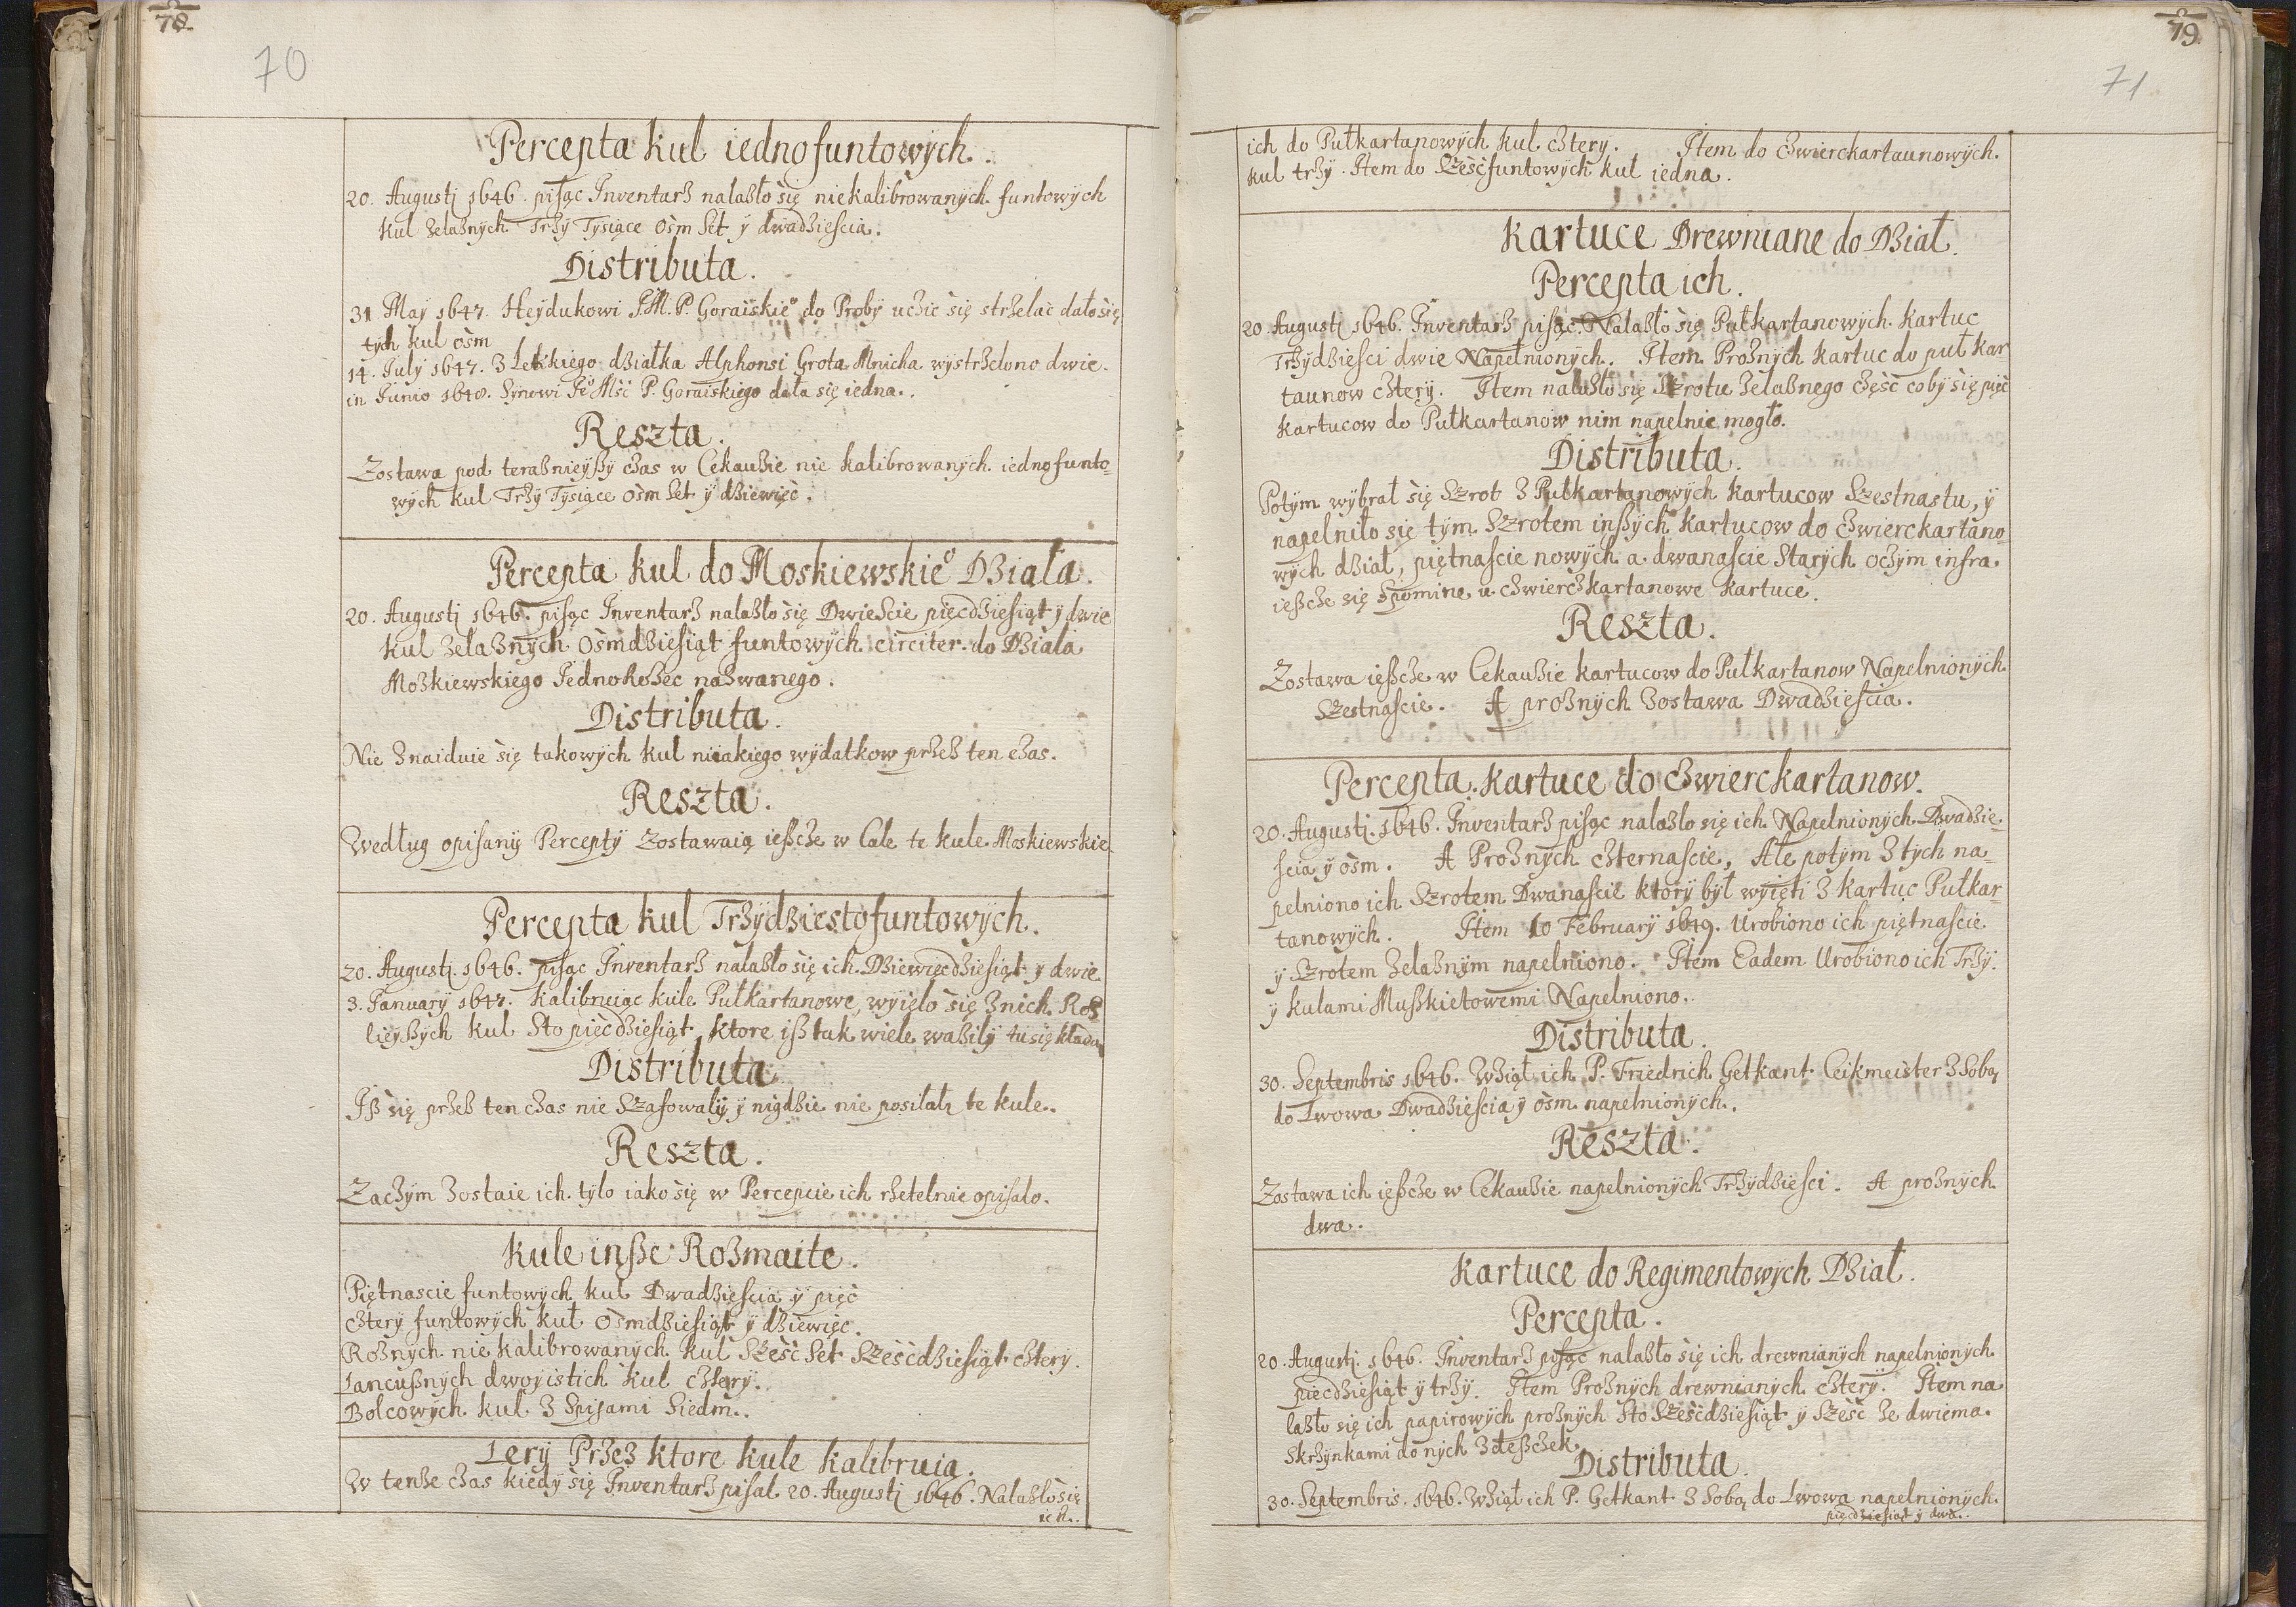 78.
70
Percepta kul iednofuntowÿch.
20. Augustj 1646. pisąc Inventarz nalazło się niekalibrowanÿch funtowÿch
kul żelaznÿch Trzÿ Tÿsiące osm set ÿ dwadziescia.
Distributa.
31 Maÿ 1647. Heÿdukowi J.M.P. Goraiskie° do Probÿ uczic się strzelać dało się
tÿch kul osm
14. Julÿ 1647. z Letkiego działka Alphonsi Grota Mnicha wÿstrzelono dwie.
in Junio 1648. Sÿnowi Je° Mści P. Goraiskiego dała się iedna.
Reszta.
Zostawa pod teraznieÿßÿ czas w Cekauzie nie kalibrowanÿch iednofunto=
wÿch kul Trzÿ Tÿsiące osm set ÿ dziewięć.
Percepta kul do Moskiewskie° Działa.
20. Augustj 1646. pisąc Inventarz nalazło się Dwiescie pięcdziesiąt ÿ dwie
kul żelaznÿch osmdziesiąt funtowÿch circiter do Działa
Mozkiewskiego Jednorożec nazwanego.
Distributa.
Nie znaiduie się takowÿch kul niiakiego wÿdatkow przez ten czas.
Reszta.
Według opisanÿ Perceptÿ zostawaią ießcze w Cale te kule Moskiewskie.
Percepta kul Trzÿdziestofuntowÿch.
20. Augustj. 1646. pisąc Inventarz nalazło się ich Dziewięcdziesiąt ÿ dwie.
3. Januarÿ 1647. kalibruiąc kule Pułkartanowe, wÿięło się z nich Roz
lieÿßÿch kul Sto pięcdziesiąt, ktore iß tak wieleważilÿ tu się kłada
Distributa
Iß się przez ten czas nie Szafowalÿ ÿ nigdzie nie posilalj te kule.
Reszta.
Zaczÿm zostaie ich tÿlo iako się w Percepcie ich rzetelnie opisalo.
Kule inßе Rozmaite.
Piętnascie funtowÿch kul Dwadziescia ÿ pięć
cżterÿ funtowÿch kul osmdziesiąt ÿ dziewięc.
Roznÿch nie kalibrowanÿch kul Sześć set Sześcdziesiąt czterÿ.
Łancußnÿch dwoÿistich kul czterÿ.
Bolcowÿch kul z Spisami Siedm.
Lerÿ Przez ktore kule kalibruią.
W tenże czas kiedÿ się Inventarz pisal 20. Augustj 1646. Nalazło się
ich.
79
71
ich do Pułkartanowÿch kul czterÿ. Item do czwierckartaunowÿch
kul trzÿ. Item do Sześćfuntowÿch kul iedna.
Kartuce Drewniane do Dział.
Percepta ich.
20. Augustj 1646. Inventarz pisąc Nalazło się Pułkartanowÿch Kartuc
Trzÿdziesci dwie Napełnionÿch. Item Proznÿch kartuc do puł kar
taunow czterÿ. Item nalazło się Szrotu żelaznego częsc cobÿ się pięć
kartucow do Pułkartanow nim napelnic mogło.
Distributa.
Potÿm wÿbrał się Szrot z Pułkartanowÿch Kartucow Szestnastu, ÿ
napelniło się tÿm Szrotem inßÿch kartucow do czwierckartano=
wÿch dział, piętnascie nowÿch a dwanascie Starÿch oczÿm infra
ießcze się spomine u czwierczkartanowe kartuce.
Reszta.
Zostawa ießcze w Cekauzie kartucow do Pułkartanow Napelnionÿch
Szestnascie. A proznÿch zostawa Dwadziescia.
Percepta kartuce do czwierckartanow.
20. Augustj. 1646. Inventarz pisąc nalazlo się ich Napelnionÿch Dwadzie=
scia ÿ osm. A Proznÿch czternascie, Ale potÿm z tÿch na=
pelniono ich Szrotem Dwanascie ktorÿ bÿł wÿięti z kartuc Pułkar
tanowÿch. Item 10 Februarÿ 1649. Urobiono ich piętnascie
ÿ Szrotem żelaznÿm napełniono. Item Eadem Urobiono ich Trzÿ.
ÿ kulami Mußkietowemi Napelniono.
Distributa.
30. Septembris 1646. Wziął ich P. Friedrich Getkant Ceikmeister z Sobą
do Lwowa Dwadziescia ÿ osm napelnionÿch.
Reszta.
Zostawa ich ießcze w Cekauzie napelnionÿch Trzÿdziesci. A proznÿch
dwa.
Kartuce do Regimentowÿch Dział.
Percepta.
20. Augustj. 1646. Inventarz pisąc nalazło się ich drewnianÿch napelnionÿch
pięcdziesiąt ÿ trzÿ. Item Proznÿch drewnianÿch czterÿ. Item na
lazło się ich papirowÿch proznÿch Sto Sześcdziesiąt ÿ Sześć ze dwiema
Skrzÿnkami do nÿch z deßczek.
Distributa.
30. Septembris. 1646. Wziął ich P. Getkant z Sobą do Lwowa napelnionÿch.
pięcdziesiąt ÿ dwa.